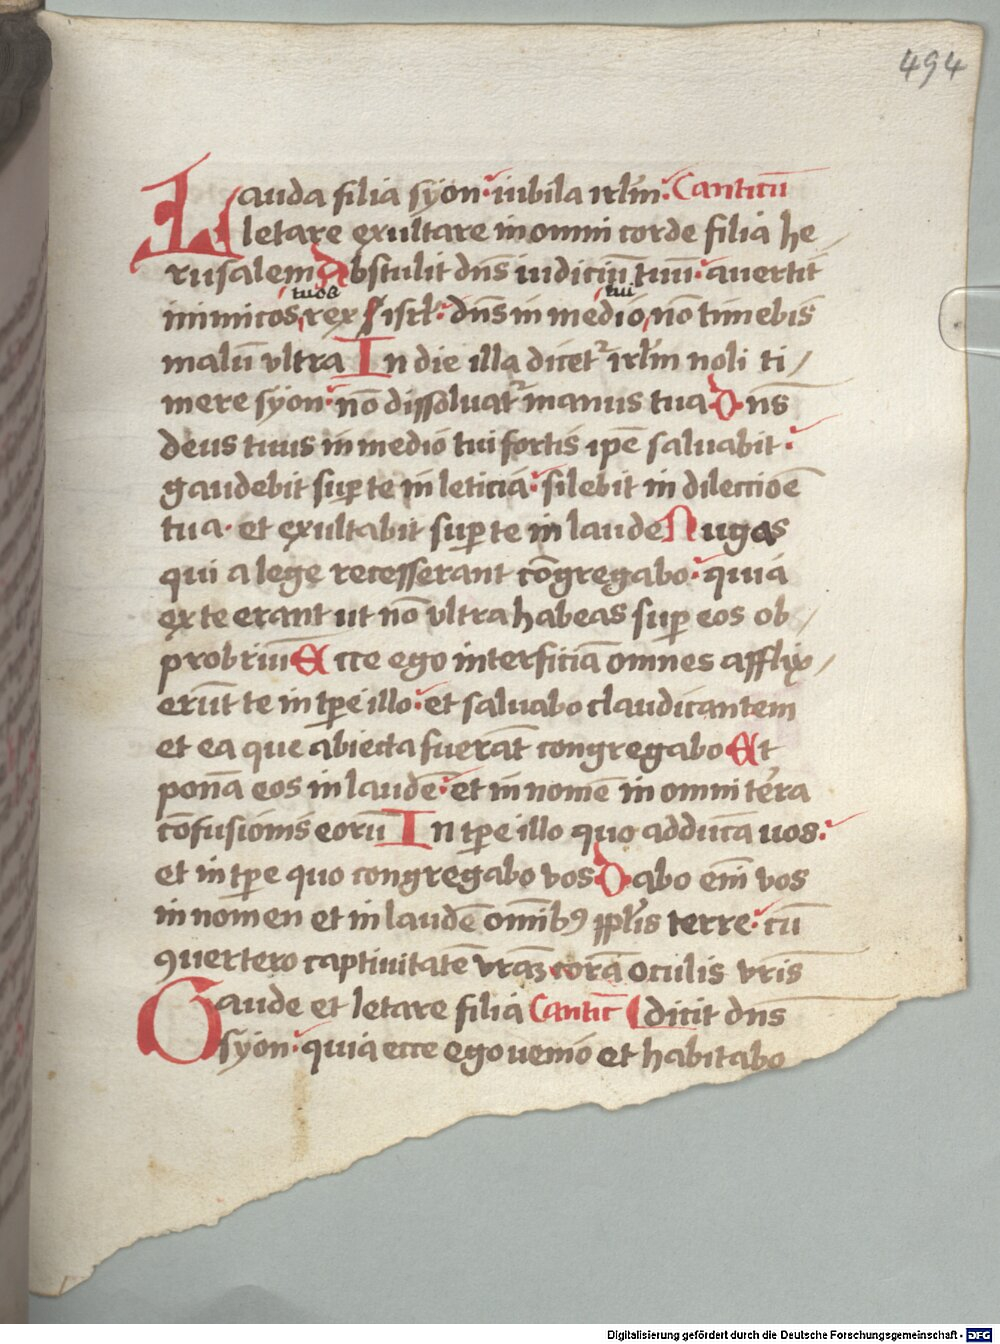 494
Lauda filia syon: iubila irl̄m: Canticū
letare exultare in omni corde filia he/
rusalem Abstulit dn̄s iudiciū tuū: auertit
tuos tui
inimicos, rex isrl̄: dn̄s in medio, nō timebis
malū vltra In die illa dicet᷑ irl̄m noli ti/
mere syon: nō dissoluat᷑ manus tua Dn̄s
deus tuus in medio tui fortis ip̄e saluabit:
gaudebit sup̄ te in leticia: silebit in dileccioē
tua· et exultabit sup̄ te in laude Nugas
qui a lege recesserant cōngregabo: quia
ex te erant ut nō vltra habeas sup̄ eos ob/
probriū Ecce ego interficiā omnes afflix/
erūt te in tp̄e illo: et saluabo claudicantem
et ea que abiecta fuerāt congregabo Et
ponā eos in laudē: et in nomē in omni terra
cōfusionis eorū In tp̄e illo quo adducā uos:
et in tp̄e quo congregabo vos Dabo em̄ vos
in nomen et in laudē omībꝰ pp̄lis terre: cū
ꝯuertero captiuitatē vr̄aꝫ corā oculis vr̄is
Gaude et letare filia Cantic̄ dicit dn̄s
syon: quia ecce ego uenio et habitabo
Digitalisierung gefördert durch die Deutsche Forschungsgemeinschaft - DFG